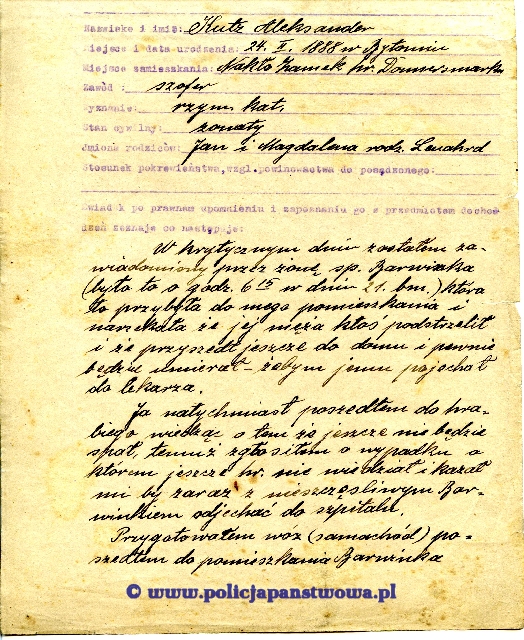 Nazwisko i imię: Kutz Aleksander
Miejsce i data urodzenia: 24. II. 1888 w Bytomiu
Miejsce zamieszkania: Nakło Zamek hr. Donnersmarka
Zawód : szofer
wyznanie: rzym. kat.
Stan cywilny: żonaty
Imiona rodziców: Jan i Magdalena rodz. Lenahrd
Stosunek pokrewieństwa, wzgl. powinowactwa do posądzonego:
Świadek po prawnem upomnieniu i zapoznaniu go z przedmiotem docho-
dzeń zeznaje co następuje:
W krytycznym dniu zostałem za-
wiadomiony przez żonę śp. Barwinka
(było to o godz. 6 15 w dniu 21. bm.) która
to przybyła do mego pomieszkania i
narzekała że jej męża ktoś podstrzelił
i że przyszedł jeszcze do domu i pewnie
będzie umierał - żebym jemu pojechał
do lekarza.
Ja natychmiast poszedłem do hra-
biego wiedząc o tem że jeszcze nie będzie
spał, temuż zgłosiłem o wypadku o
którem jeszcze hr. nie wiedział i kazał
mi by zaraz z nieszczęśliwym Bar-
winkiem odjechać do szpitala.
Przygotowałem wóz (samochód) po-
szedłem do pomieszkania Barwinka
© www.policjapanstwowa.pl